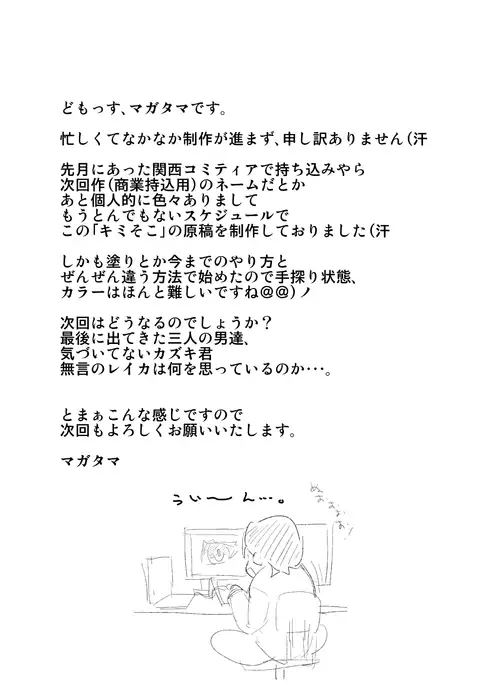 どもっす、マガタマです。
忙しくてなかなか制作が進まず、申し訳ありません(汗
先月にあった関西コミティアで持ち込みやら
次回作(商業持込用)のネームだとか
あと個人的に色々ありまして
もうとんでもないスケジュールで
この「キミそこ」の原稿を制作しておりました(汗
しかも塗りとか今までのやり方と
ぜんぜん違う方法で始めたので手探り状態、
カラーはほんと難しいですね@@)ノ
次回はどうなるのでしょうか？
最後に出てきた三人の男達、
気づいてないカズキ君
無言のレイカは何を思っているのか・・・。
とまぁこんな感じですので
次回もよろしくお願いいたします。
マガタマ
うぃ〜ん…。